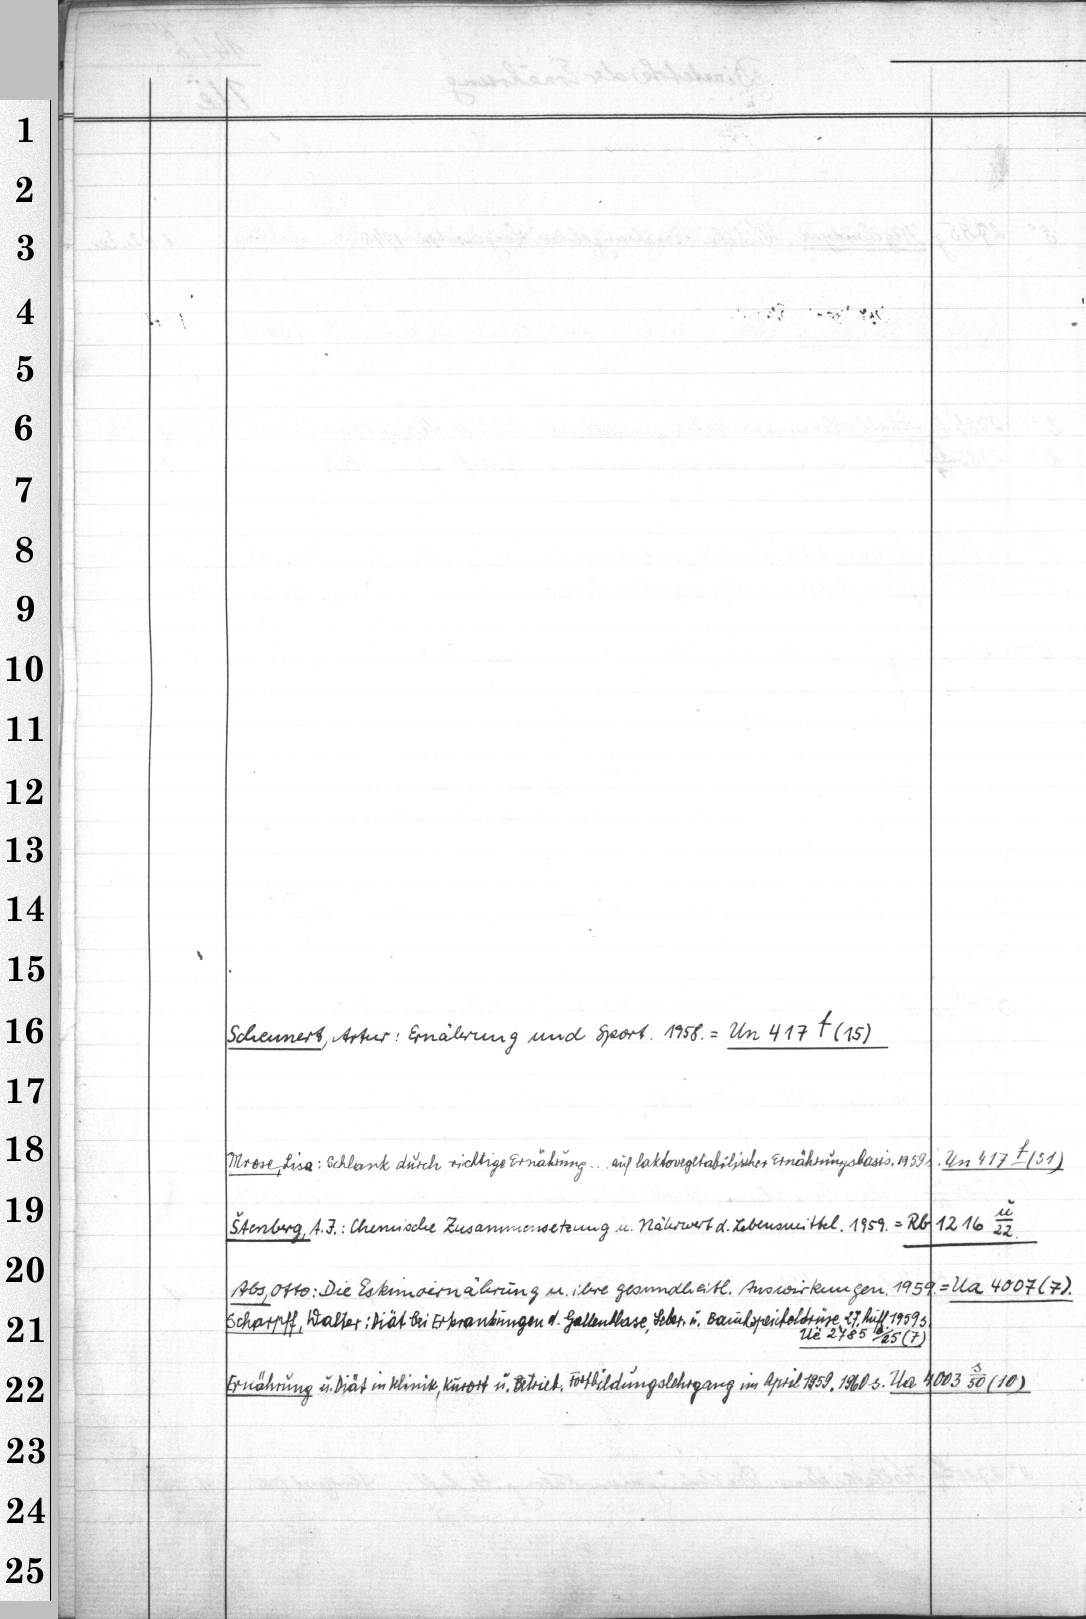 1
2
3
4
5
6
7
8
9
10
11
12
13
14
15
16
Scheunert, Artur: Ernährung und Sport. 1958. = Un 417 t (15)
17
18
Mrose, Lisa: Schlank durch richtige Ernährung... auf laktovegetabilischer Ernährungsbasis. 1959 s. Un 417 t (51)
19
Štenberg, A.J.: Chemische Zusammensetzung u. Nährwert d. Lebensmittel. 1959. = Rb 1216 ü/22.
20
Abs, Otto: Die Eskimoernährung u. ihre gesundheitl. Auswirkungen. 1959. = Ua 4007 (7).
21
Scharpff, Walter: Diät bei Erkrankungen d. Gallenblase, Leber u. Bauchspeicheldrüse. 27. Aufl. 1959 s.
Uë 2785 /25 (7)
22
Ernährung u. Diät in Klinik, Kurort u. Betrieb. Fortbildungslehrgang im April 1959. 1960 s. Ua 4003 s/50 (10)
23
24
25